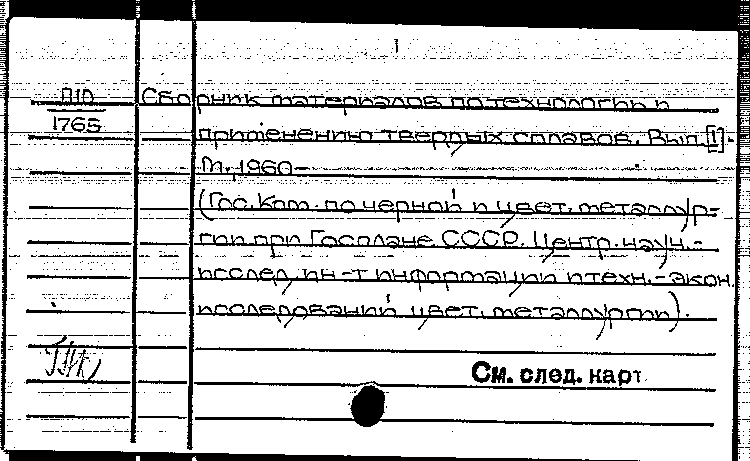 1
П10 Сборник материалов по технологии и
1765 применению твердых сплавов. Вып. [1].
М., 1960-
(Гос. Ком. по черной и цвет. металлур-
гии при Госплане СССР. Центр. науч.-
исслед. ин-т информации и техн.-экон.
исследований цвет. металлургии).
См. след. карт